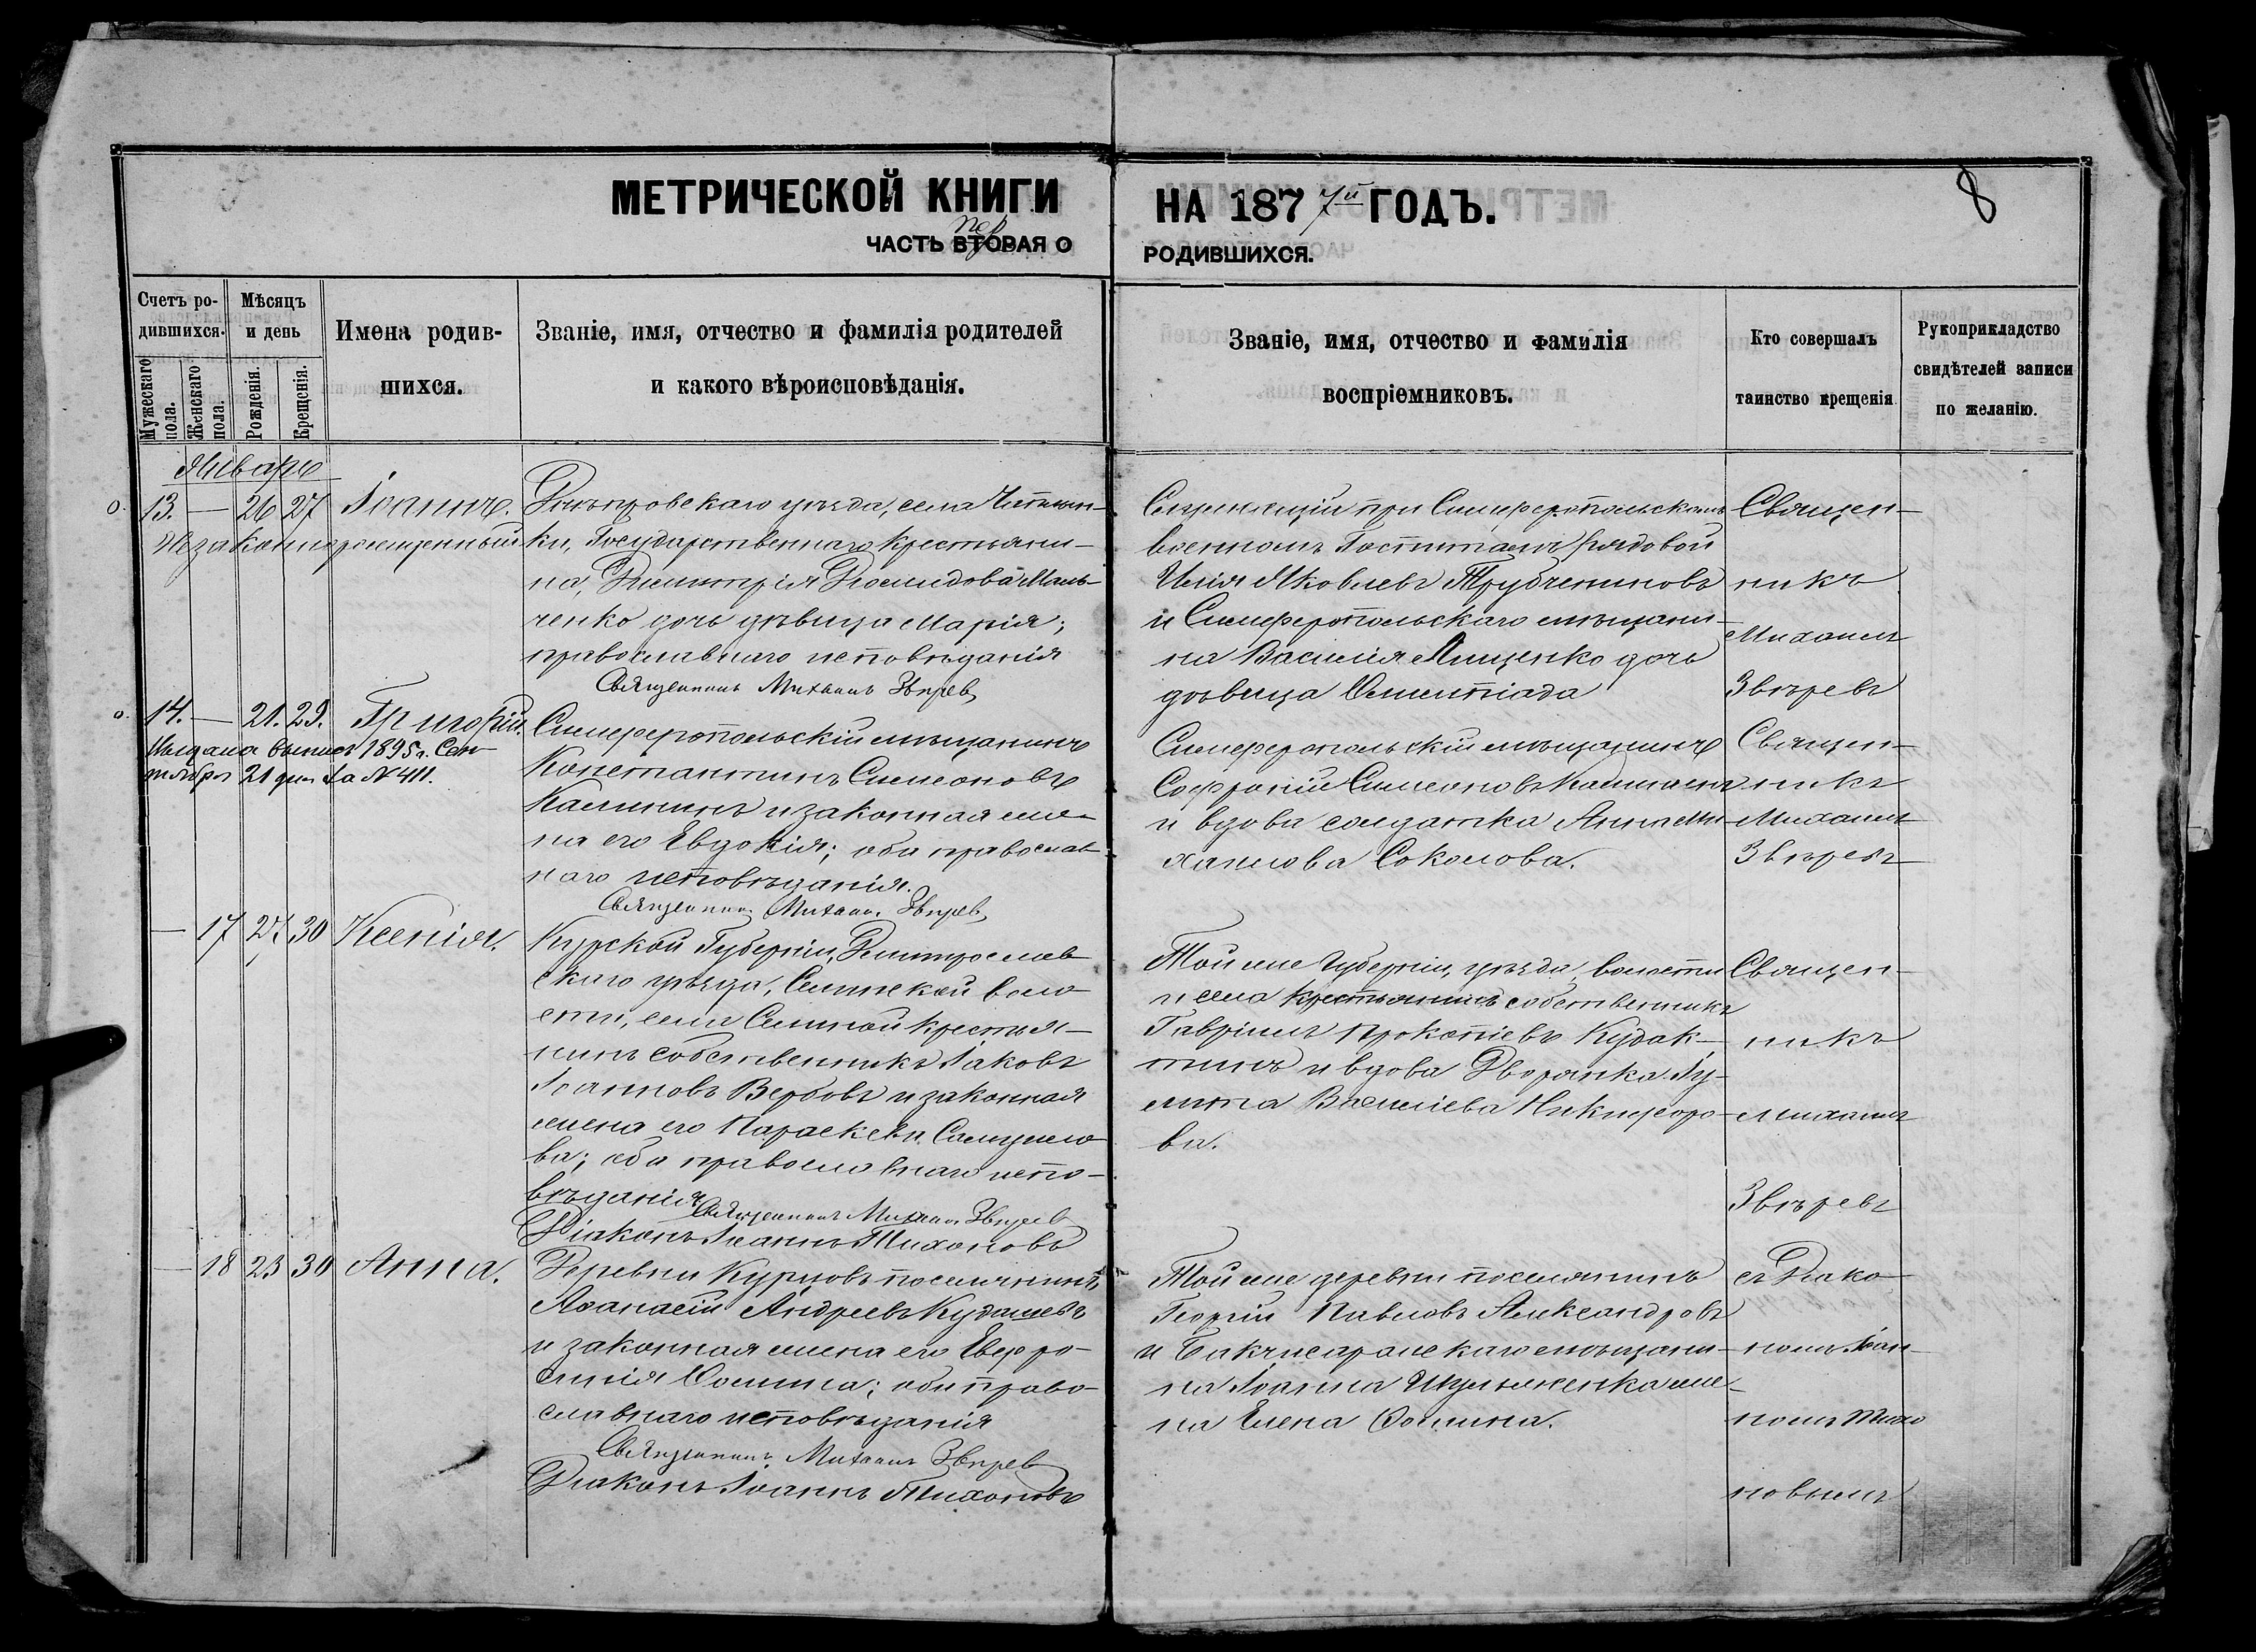 МЕТРИЧЕСКОЙ КНИГИ
пер
ЧАСТЬ ВТОРАЯ О
НА 1877й ГОДЪ.
РОДИВШИХСЯ.
8
Счетъ ро-
дившихся.
Мужескаго пола.
Женскаго пола.
Мѣсяцъ
и день
Рожденія.
Крещенія.
Имена родив-
шихся.
Званіе, имя, отчество и фамилія родителей
и какого вѣроисповѣданія.
Званіе, имя, отчество и фамилія
воспріемниковъ.
Кто совершалъ
таинство крещенія
Рукоприкладство
свидѣтелей записи
по желанію.
Январь
13. — 26 27 Іоаннъ.
Незаконнорожденный
Днѣпровскаго уѣзда, села
ки, Государственнаго крестьяни-
на, Димитрія Діомидова Маль-
ченко дочь дѣвица Марія;
православнаго исповѣданія
Священникъ Михаилъ Звѣрев
Служащій при Симферопольскомъ
военномъ Госпиталѣ рядовой
Илія Яковлевъ Трубчениновъ
и Симферопольскаго мѣщани-
на Василія Лященко дочь
дѣвица Олимпіада
Священ-
никъ
Михаилъ
Звѣревъ
14. — 21. 29. Григорій.
Выдана выпись 1895 г. Сен-
тября 21 дня за N 411.
Симферопольскій мѣщанинъ
Константинъ Симеоновъ
Калининъ и законная же-
на его Евдокія; оба православ-
наго исповѣданія.
Священник Михаил Звѣрев
Симферопольскій мѣщанинъ
Софроній Симеоновъ Калининъ
и вдова солдатка Анна Ми-
хаилова Соколова.
Священ-
никъ
Михаилъ
Звѣревъ
— 17 27 30 Ксенія.
Курской Губерніи, Дмитріев-
скаго уѣзда, воло-
сти, села крестья-
нинъ собственникъ Іаковъ
Іоанновъ Вербовъ и законная
жена его Параскева Самуило-
ва; оба православнаго испо-
вѣданія
Священникъ Михаил Звѣрев
Діаконъ Іоаннъ Тихоновъ
Той же Губерніи, уѣзда, волости
и села крестьянинъ собственникъ
Гавріилъ Прокопіевъ
и вдова Дворянка Іу-
лита Василіева Никифоро-
ва.
Священ-
никъ
Михаилъ
Звѣревъ
— 18 23 30 Анна.
Деревни Курцовъ поселянинъ,
Аѳанасій Андреевъ Кудашевъ
и законная жена его Евфро-
синія Ѳомина; оба право-
славнаго исповѣданія
Священникъ Михаилъ Звѣрев
Діаконъ Іоаннъ Тихоновъ
Той же деревни поселянинъ
Георгій Павловъ Александровъ
и Бахчисарайскаго мѣщани-
на Іоанна же-
на Елена Ѳомина.
съ Діако-
номъ Іоан-
номъ Тихо
новымъ